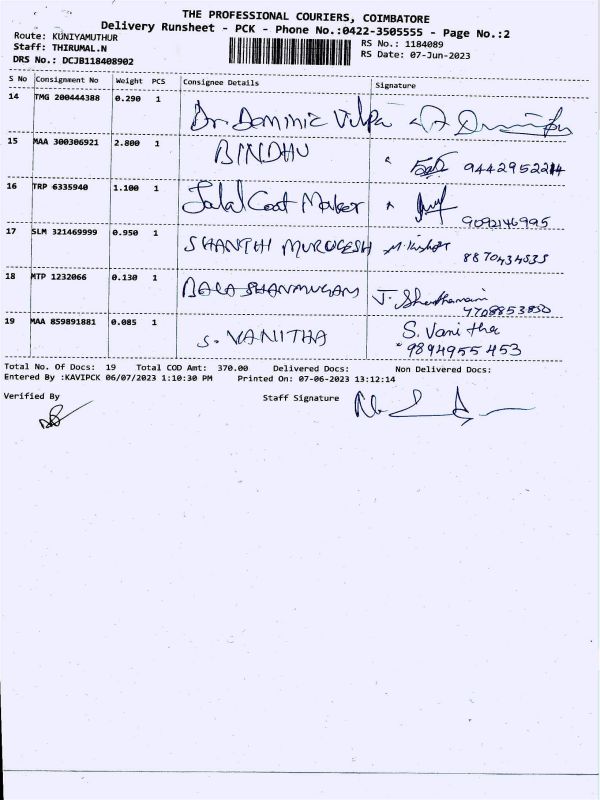 THE PROFESSIONAL COURIERS, COIMBATORE
Delivery Runsheet - PCK - Phone No.:0422-3505555 - Page No.:2
Route: KUNIYAMUTHUR
RS No.: 1184089
Staff: THIRUMAL.N
RS Date: 07-Jun-2023
DRS No.: DCJB118408902
S No Consignment No Weight PCS Consignee Details Signature
14 TMG 200444388 0.290 1 Dr. Dominic
15 MAA 300306921 2.800 1 BINDHU
16 TRP 6335940 1.100 1 Jalal Coat Maker
9092146995
17 SLM 321469999 0.950 1 SHANTHI MURUGESH
8870434535
18 MTP 1232066 0.130 1 BALA SHANMUGAM J.
19 MAA 859891881 0.085 1 S. VANITHA S. Vanitha
9894955453
Total No. Of Docs: 19 Total COD Amt: 370.00 Delivered Docs: Non Delivered Docs:
Entered By :KAVIPCK 06/07/2023 1:10:30 PM Printed On: 07-06-2023 13:12:14
Verified By Staff Signature